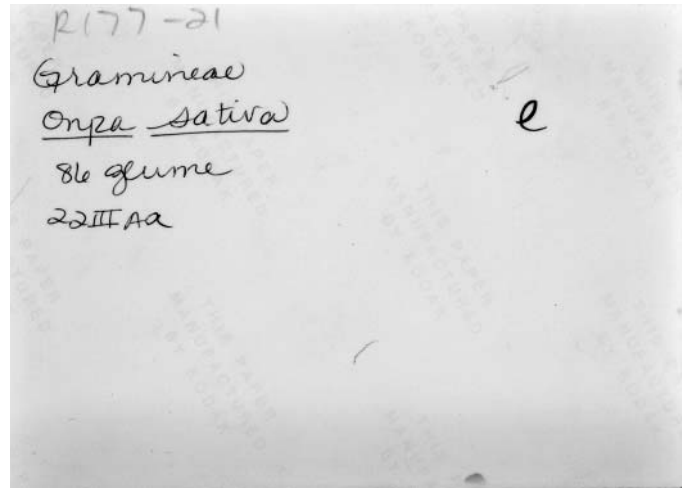 R177-21
Gramineae
Oryza sativa
86 glume
22IIIAa
e
THIS PAPER
MANUFACTURED
BY KODAK